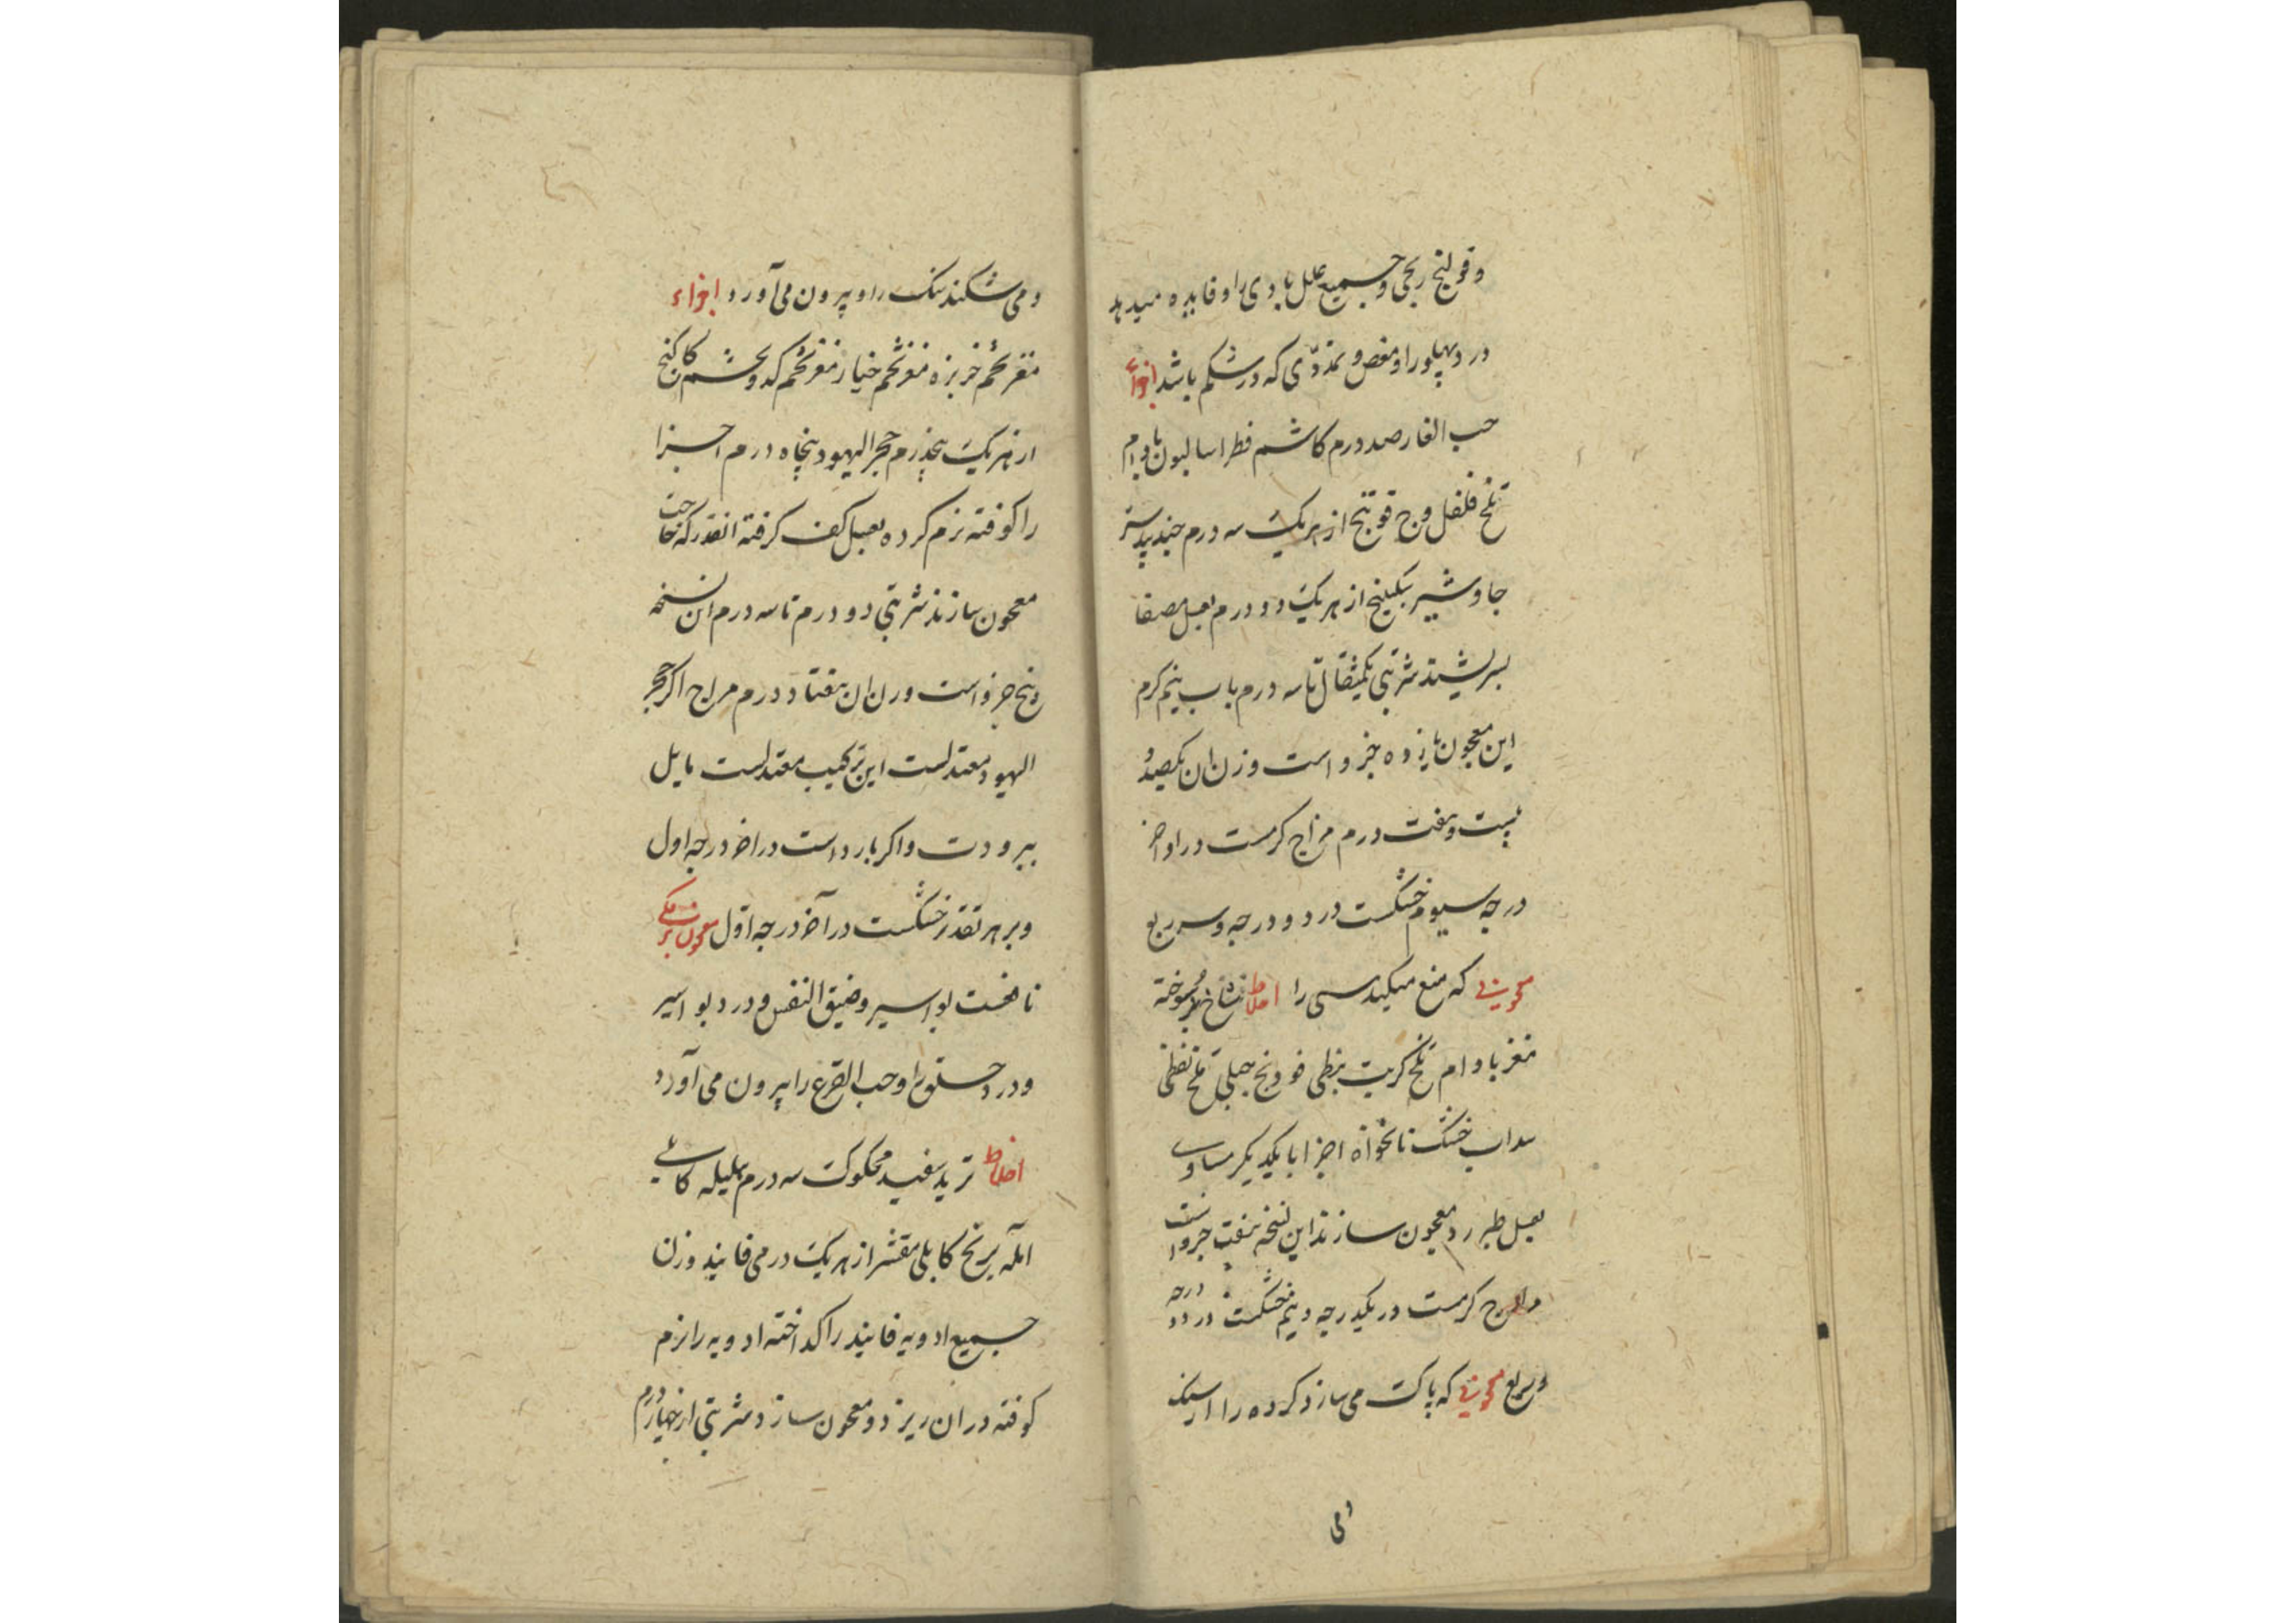 و قولنج ریحی و جمیع علل بادی را و فایده میدهد
درد پهلو را و مغص و تمددی که در شکم باشد اجزاء
حب الغار صد درم کاشم فطراسالیون بادام
تلخ فلفل وج فوتنج از هر یک سه درم جندبیدستر
جاوشیر سکبینج از هر یک دو درم بعسل مصفا
بسرشند شربتی یکمثقال تا سه درم باب نیم کرم
این معجون یازده جزو است وزن ان یکصد و
بیست و هفت درم مزاج کرمست در اواخر
درجه سیوم خشکست در دو درجه و سربع
معجونی که منع میکند سی را اخلاط شاخ بز سوخته
مغز بادام تلخ کبریت نبطی فودنج جبلی تلخ نفطی
سداب خشک نانخواه اجزا با یکدیگر مساوی
بعسل طبرزد معجون سازند این نسخه هفت جزو است
مزاج کرمست در یکدرجه و نیم خشکست در دو درجه
و ربع معجونی که پاک می سازد کرده را از سنک
و می
و می شکند سنک را و بیرون می آورد اجزاء
مغز تخم خربزه مغز تخم خیار مغز تخم کدو تخم کاکنج
از هر یک پنجدرم حجر الیهود پنجاه درم اجزا
را کوفته نرم کرده بعسل کف کرفته انقدر که حاجت
معجون سازند شربتی دو درم تا سه درم ان نسخه
پنج جزو است وزن ان هفتاد درم مزاج اکر حجر
الیهود معتدلست این ترکیب معتدلست مایل
ببرودت و اکر بارد است در اخر درجه اول
و بر هر تقدیر خشکست در آخر درجه اول معجون برمکی
نافعست بواسیر و ضیق النفس و درد بواسیر
و درد خستو را و حب القرع را بیرون می آورد
اخلاط تربد سفید محکوک سه درم هلیله کابلی
آمله برنج کابلی مقشر از هر یک درمی فانیذ وزن
جمیع ادویه فانیذ را کداخته ادویه را نرم
کوفته در ان ریزد و معجون سازد شربتی از چهار درم